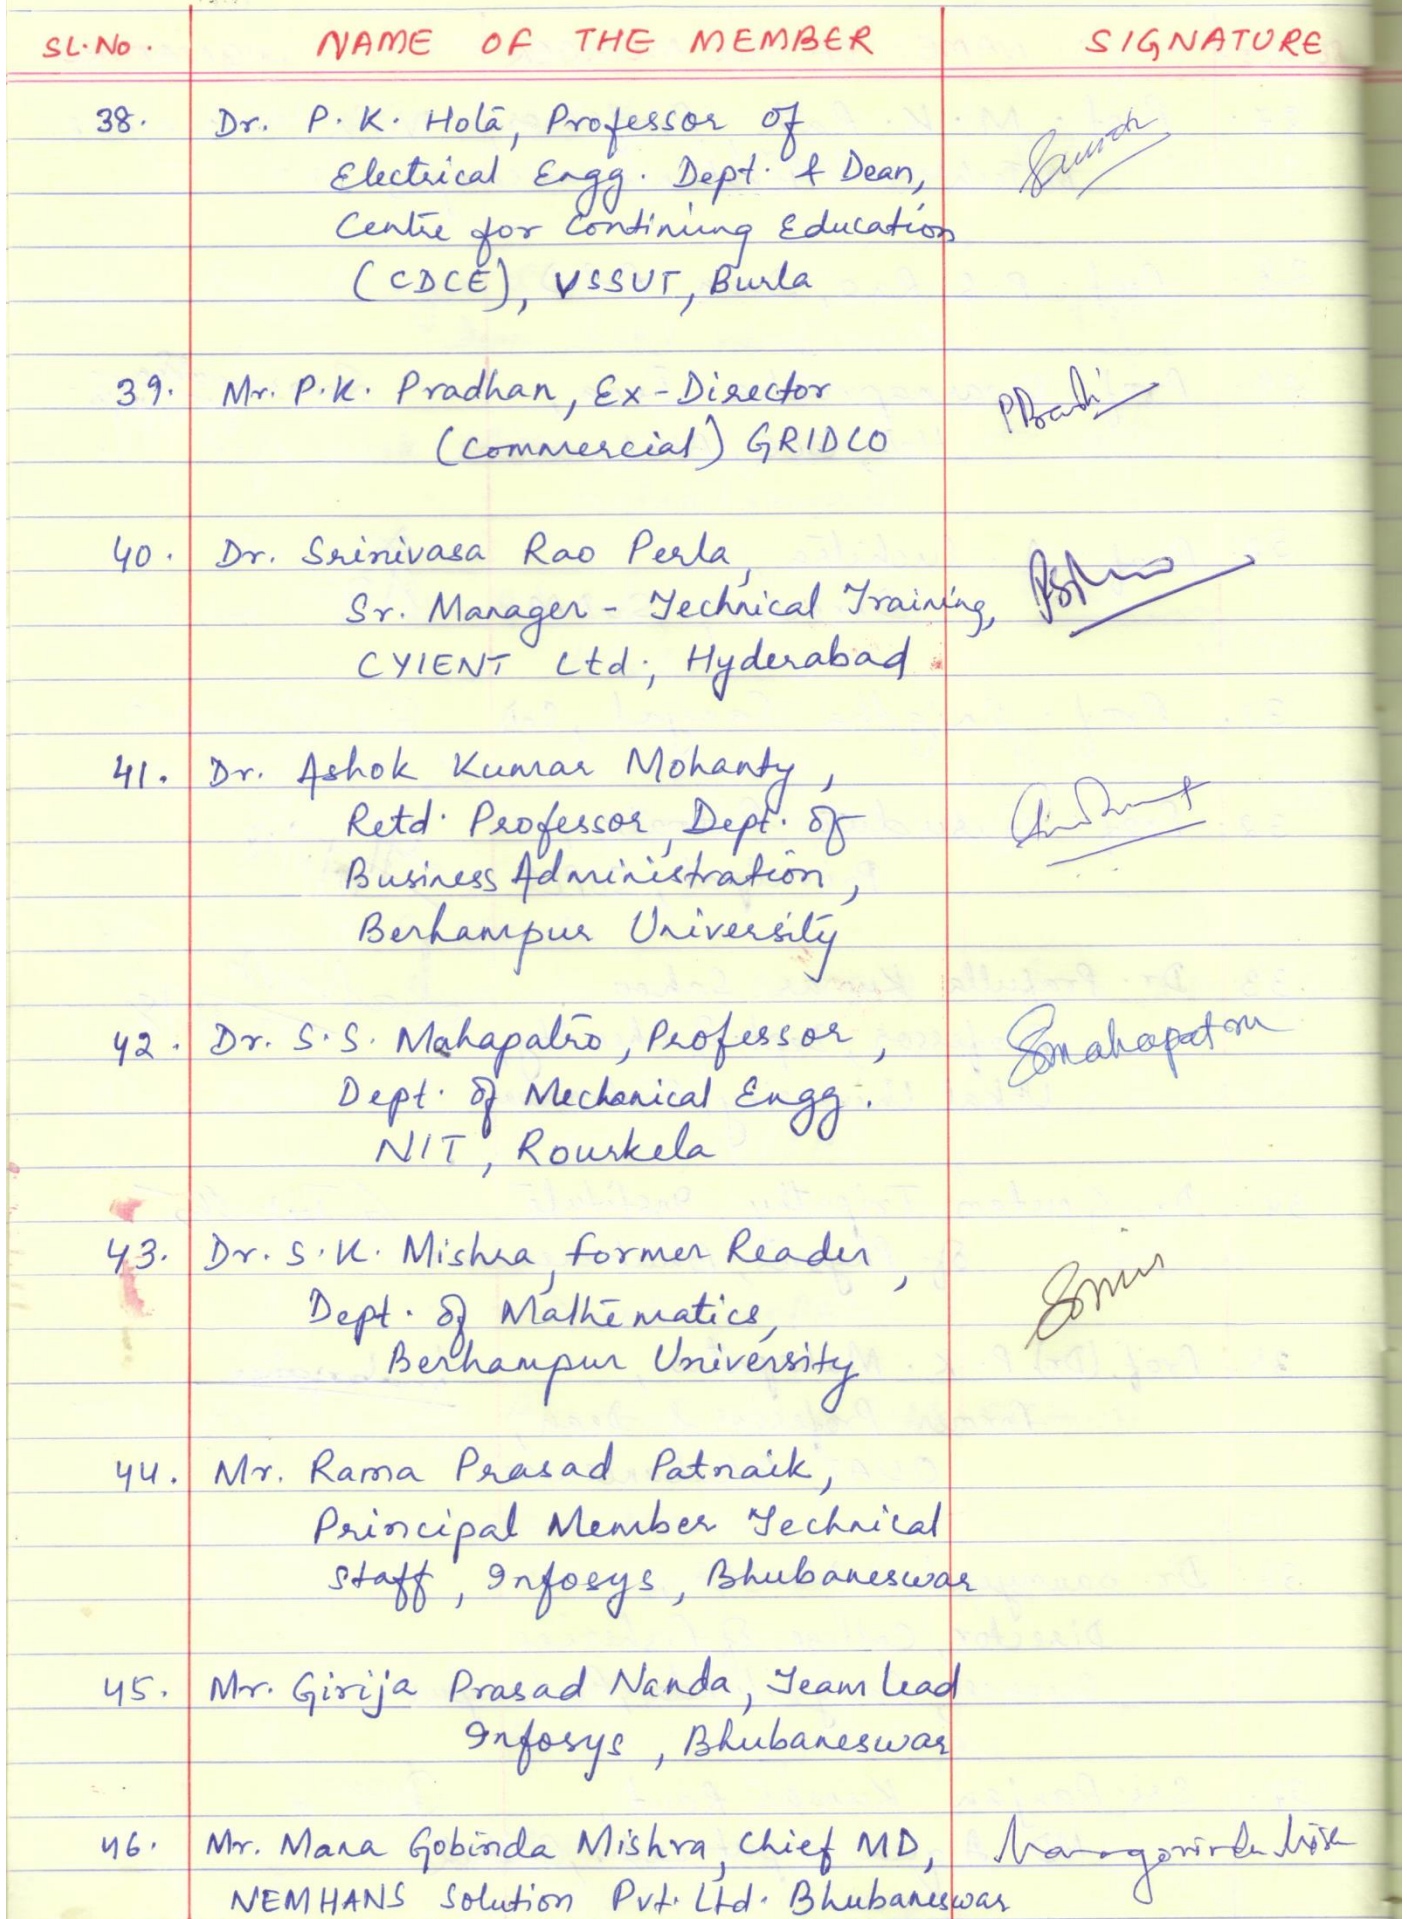 SL.No. NAME OF THE MEMBER SIGNATURE
38. Dr. P.K. Hota, Professor of
Electrical Engg. Dept. & Dean,
Centre for Continiung Education
(CDCE), VSSUT, Burla
39. Mr. P.K. Pradhan, Ex-Director
(Commercial) GRIDCO
40. Dr. Srinivasa Rao Perla,
Sr. Manager - Technical Training,
CYIENT Ltd., Hyderabad
41. Dr. Ashok Kumar Mohanty,
Retd. Professor, Dept. of
Business Administration,
Berhampur University
42. Dr. S.S. Mahapatro, Professor, Smahapatra
Dept. of Mechanical Engg.
NIT, Rourkela
43. Dr. S.K. Mishra, former Reader,
Dept. of Mathematics,
Berhampur University
44. Mr. Rama Prasad Patnaik,
Principal Member Technical
Staff, Infosys, Bhubaneswar
45. Mr. Girija Prasad Nanda, Team Lead
Infosys, Bhubaneswar
46. Mr. Mana Gobinda Mishra, Chief MD,
NEMHANS Solution Pvt. Ltd. Bhubaneswar